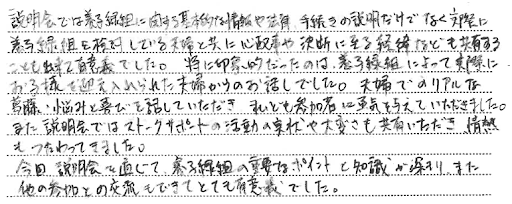 説明会では養子縁組に関する基本的な情報や法律、手続きの説明だけでなく実際に
養子縁組を検討している夫婦と共に心配事や決断に至る経緯なども共有する
ことも出来て有意義でした。特に印象的だったのは、養子縁組によって実際に
お子様を迎え入れられた夫婦からのお話しでした。夫婦でのリアルな
葛藤・悩みと喜びを話していただき、私ども参加者に勇気を与えていただきました。
また説明会ではストークサポートの活動の実状や大変さも共有いただき、情熱
もつたわってきました。
今回、説明会を通じて、養子縁組の重要なポイントと知識が深まり、また
他の参加との交流もできてとても有意義でした。